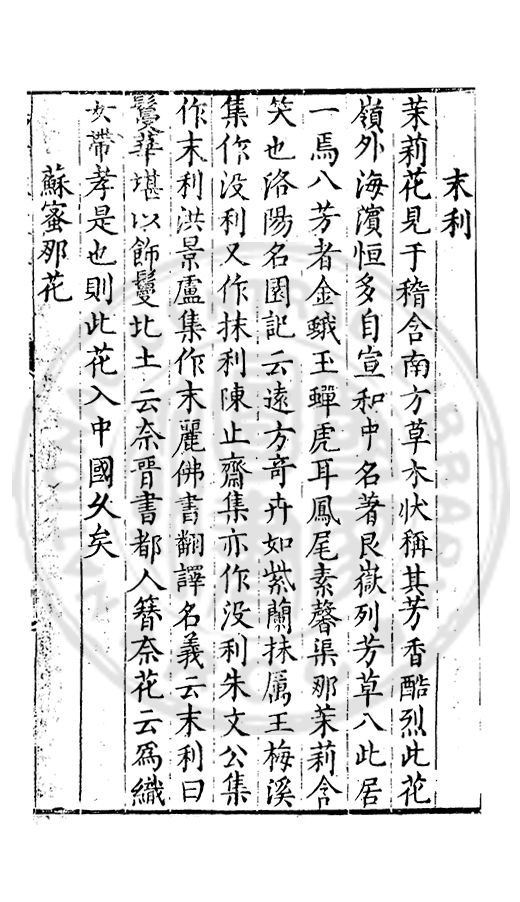 末利
茉莉花見于稽含南方草木狀稱其芳香酷烈此花
嶺外海濵恒多自宣和中名著艮嶽列芳草八此居
一焉八芳者金蛾玉蟬虎耳鳳尾素馨渠那茉莉含
笑也洛陽名園記云遠方竒卉如紫蘭抹厲王梅溪
集作没利又作抹利陳止齋集亦作没利朱文公集
作末利洪景盧集作末麗佛書翻譯名義云末利曰
鬘華堪以飾鬘北土云奈晋書都人簪奈花云爲織
女帶孝是也則此花入中國久矣
蘇蜜那花